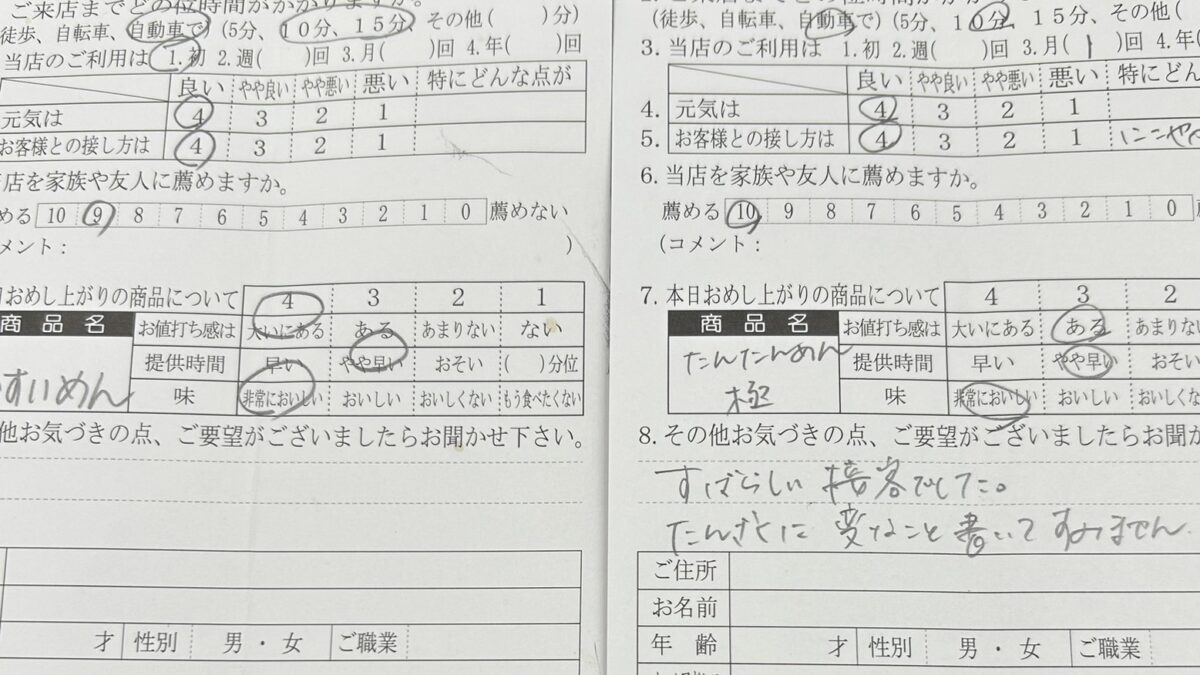 ご来店までどの位時間がかかりますか。
徒歩、自転車、自動車で) (5分、10分、15分、その他( )分)
当店のご利用は 1.初 2.週( )回 3.月( )回 4.年( )回
良い やや良い やや悪い 悪い 特にどんな点が
元気は 4 3 2 1
お客様との接し方は 4 3 2 1
店を家族や友人に薦めますか。
める 10 9 8 7 6 5 4 3 2 1 0 薦めない
メント: )
日おめし上がりの商品について 4 3 2 1
商品名 お値打ち感は 大いにある ある あまりない ない
提供時間 早い やや早い おそい ( )分位
すいめん 味 非常においしい おいしい おいしくない もう食べたくない
他お気づきの点、ご要望がございましたらお聞かせ下さい。
才 性別 男・女 ご職業
(徒歩、自転車、自動車で) (5分、10分、15分、その他(
3.当店のご利用は 1.初 2.週( )回 3.月( 1 )回 4.年(
良い やや良い やや悪い 悪い 特にどんな
4. 元気は 4 3 2 1
5. お客様との接し方は 4 3 2 1 にこやか
6.当店を家族や友人に薦めますか。
薦める 10 9 8 7 6 5 4 3 2 1 0 薦
(コメント:
7.本日おめし上がりの商品について 4 3 2
商品名 お値打ち感は 大いにある ある あまりない
たんたんめん 提供時間 早い やや早い おそい
極 味 非常においしい おいしい おいしくな
8.その他お気づきの点、ご要望がございましたらお聞か
すばらしい 接客でした。
たんざくに 変なこと 書いて すみません
ご住所
お名前
年齢 才 性別 男・女 ご職業